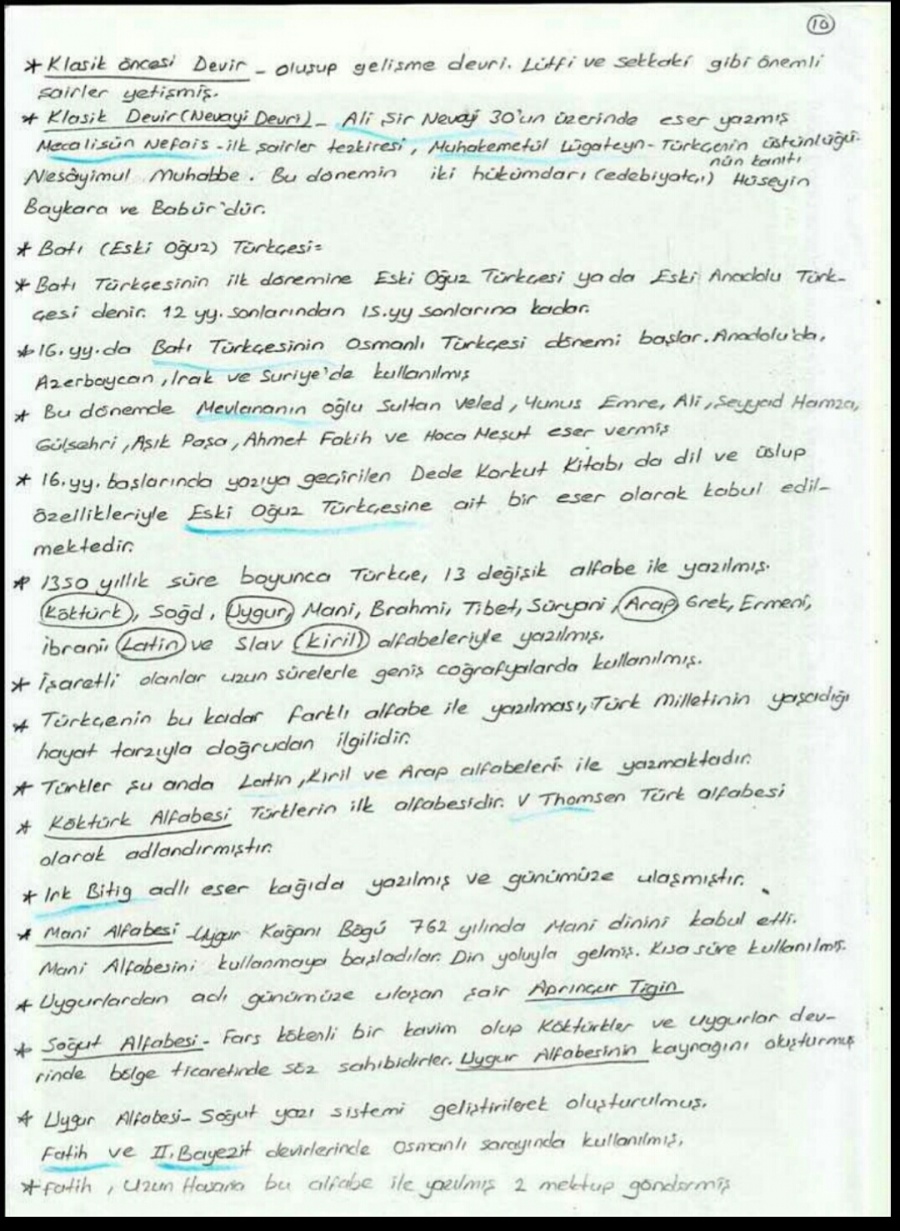 10
* Klasik öncesi Devir - oluşup gelişme devri. Lütfi ve Sekkaki gibi önemli
şairler yetişmiş.
* Klasik Devir (Nevayi Devri) - Ali Şir Nevayi 30'un üzerinde eser yazmış
Mecalisün Nefais - ilk şairler tezkiresi, Muhakemetül Lügateyn - Türkçenin üstünlüğü-
nün kanıtı
Nesâyimul Muhabbe. Bu dönemin iki hükümdarı (edebiyatçı) Hüseyin
Baykara ve Babür'dür.
* Batı (Eski Oğuz) Türkçesi=
* Batı Türkçesinin ilk dönemine Eski Oğuz Türkçesi ya da Eski Anadolu Türk-
çesi denir. 12 yy. sonlarından 15.yy sonlarına kadar.
* 16. yy. da Batı Türkçesinin Osmanlı Türkçesi dönemi başlar. Anadolu'da,
Azerbaycan, Irak ve Suriye'de kullanılmış
* Bu dönemde Mevlananın oğlu Sultan Veled, Yunus Emre, Ali, Seyyad Hamza,
Gülşehri, Aşık Paşa, Ahmet Fakih ve Hoca Mesut eser vermiş
* 16.yy. başlarında yazıya geçirilen Dede Korkut Kitabı da dil ve üslup
özellikleriyle Eski Oğuz Türkçesine ait bir eser olarak kabul edil-
mektedir.
* 1350 yıllık süre boyunca Türkçe, 13 değişik alfabe ile yazılmış.
(Köktürk), Soğd, (Uygur), Mani, Brahmi, Tibet, Süryani, (Arap) Grek, Ermeni,
İbrani, (Latin) ve Slav (Kiril) alfabeleriyle yazılmış.
* İşaretli olanlar uzun sürelerle geniş coğrafyalarda kullanılmış.
* Türkçenin bu kadar farklı alfabe ile yazılması, Türk Milletinin yaşadığı
hayat tarzıyla doğrudan ilgilidir.
* Türkler şu anda Latin, Kiril ve Arap alfabeleri ile yazmaktadır.
* Köktürk Alfabesi Türklerin ilk alfabesidir. V Thomsen Türk alfabesi
olarak adlandırmıştır.
* Irk Bitig adlı eser kağıda yazılmış ve günümüze ulaşmıştır.
* Mani Alfabesi - Uygur Kağanı Bögü 762 yılında Mani dinini kabul etti.
Mani Alfabesini kullanmaya başladılar. Din yoluyla gelmiş. Kısa süre kullanılmış.
* Uygurlardan adı günümüze ulaşan şair Aprinçur Tigin
* Soğut Alfabesi - Fars kökenli bir kavim olup Köktürkler ve Uygurlar dev-
rinde bölge ticaretinde söz sahibidirler. Uygur Alfabesinin kaynağını oluşturmuş
* Uygur Alfabesi - Soğut yazı sistemi geliştirilerek oluşturulmuş.
Fatih ve II. Bayezit devirlerinde Osmanlı sarayında kullanılmış.
* Fatih, Uzun Hasana bu alfabe ile yazılmış 2 mektup göndermiş